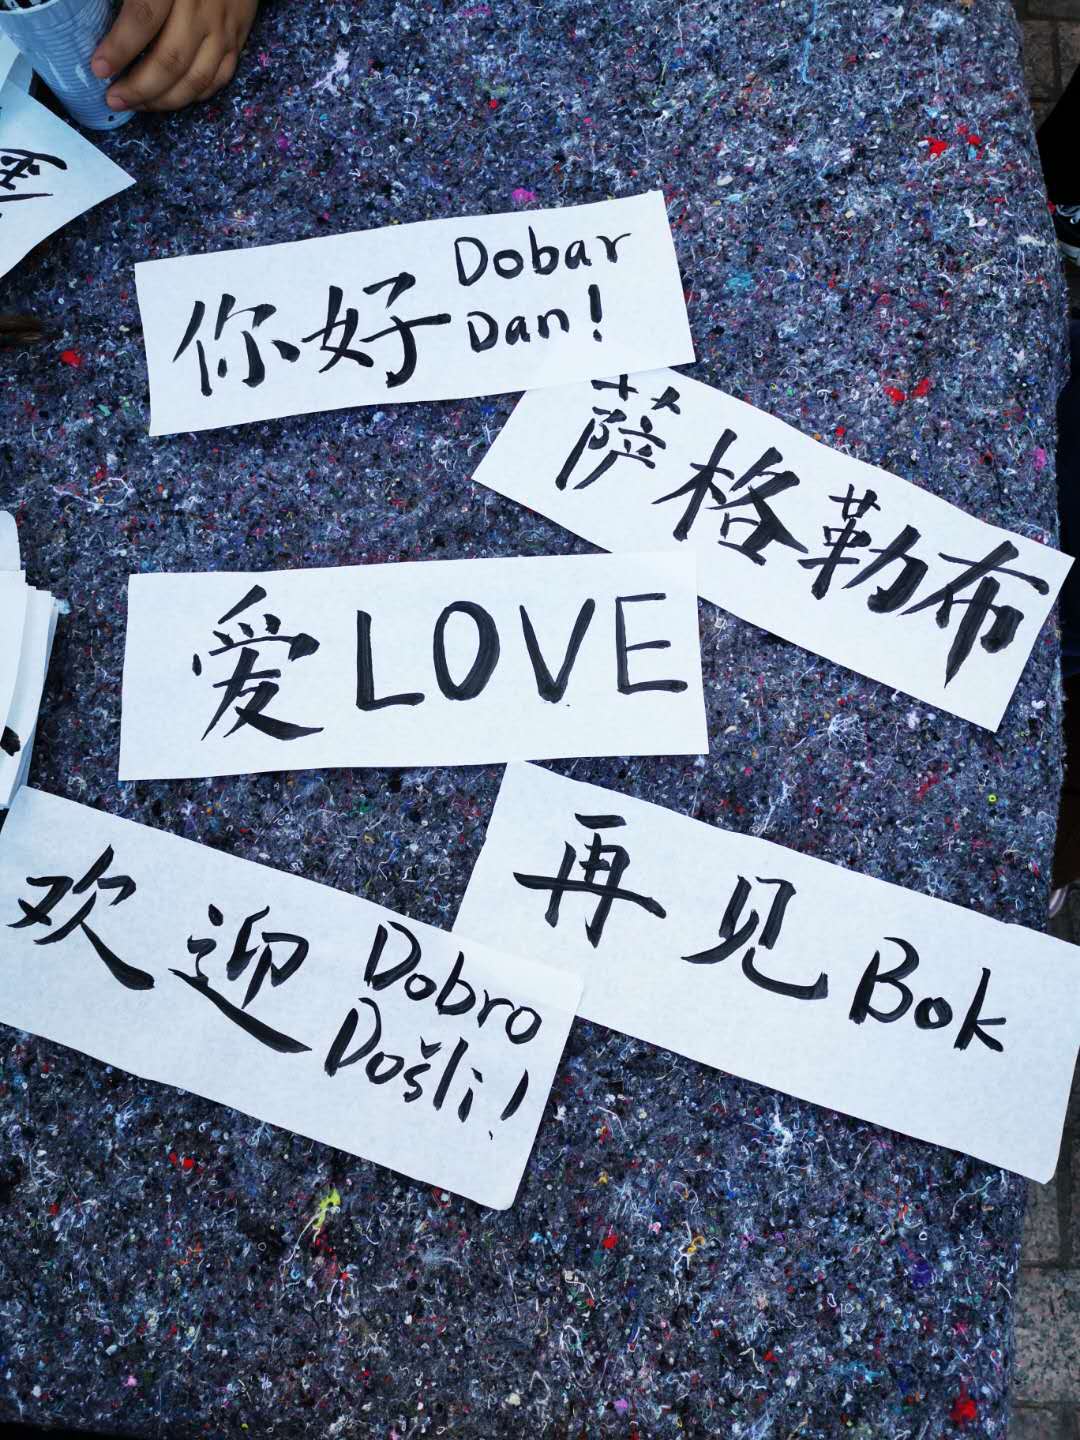 你好 Dobar
Dan!
萨格勒布
爱 LOVE
再见 Bok
欢迎 Dobro
Došli!